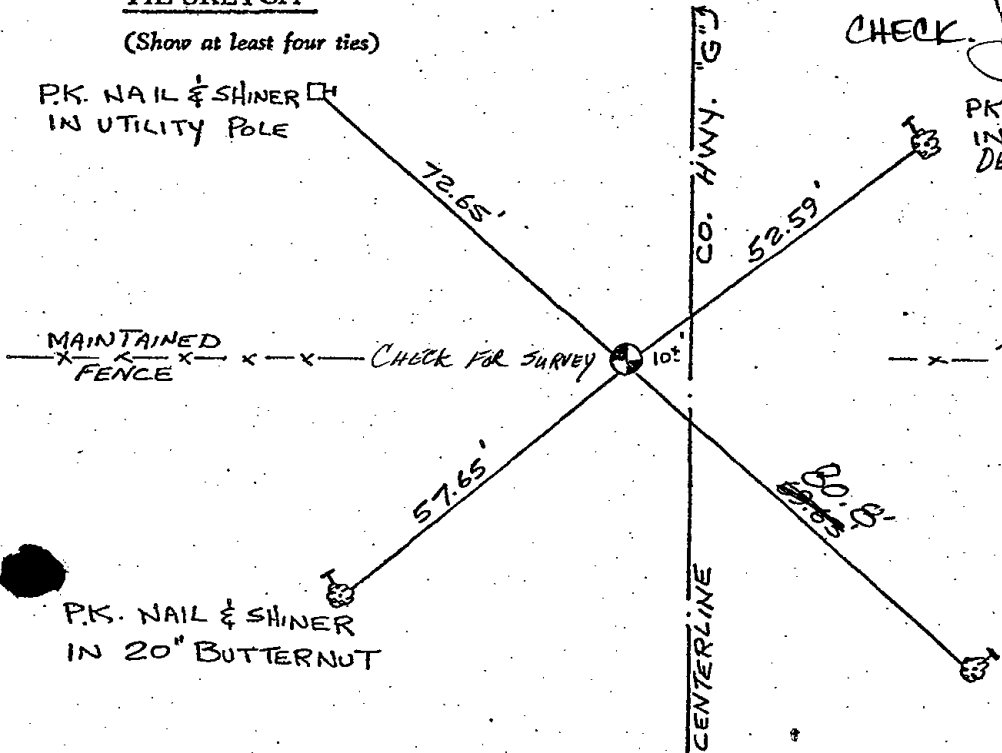 TIE SKETCH
(Show at least four ties)
CHECK.
P.K. NAIL & SHINER
IN UTILITY POLE
CO. HWY. "G"
PK
IN
72.65'
52.59'
MAINTAINED
FENCE
CHECK FOR SURVEY
10±
57.65'
80.8'
P.K. NAIL & SHINER
IN 20" BUTTERNUT
CENTERLINE